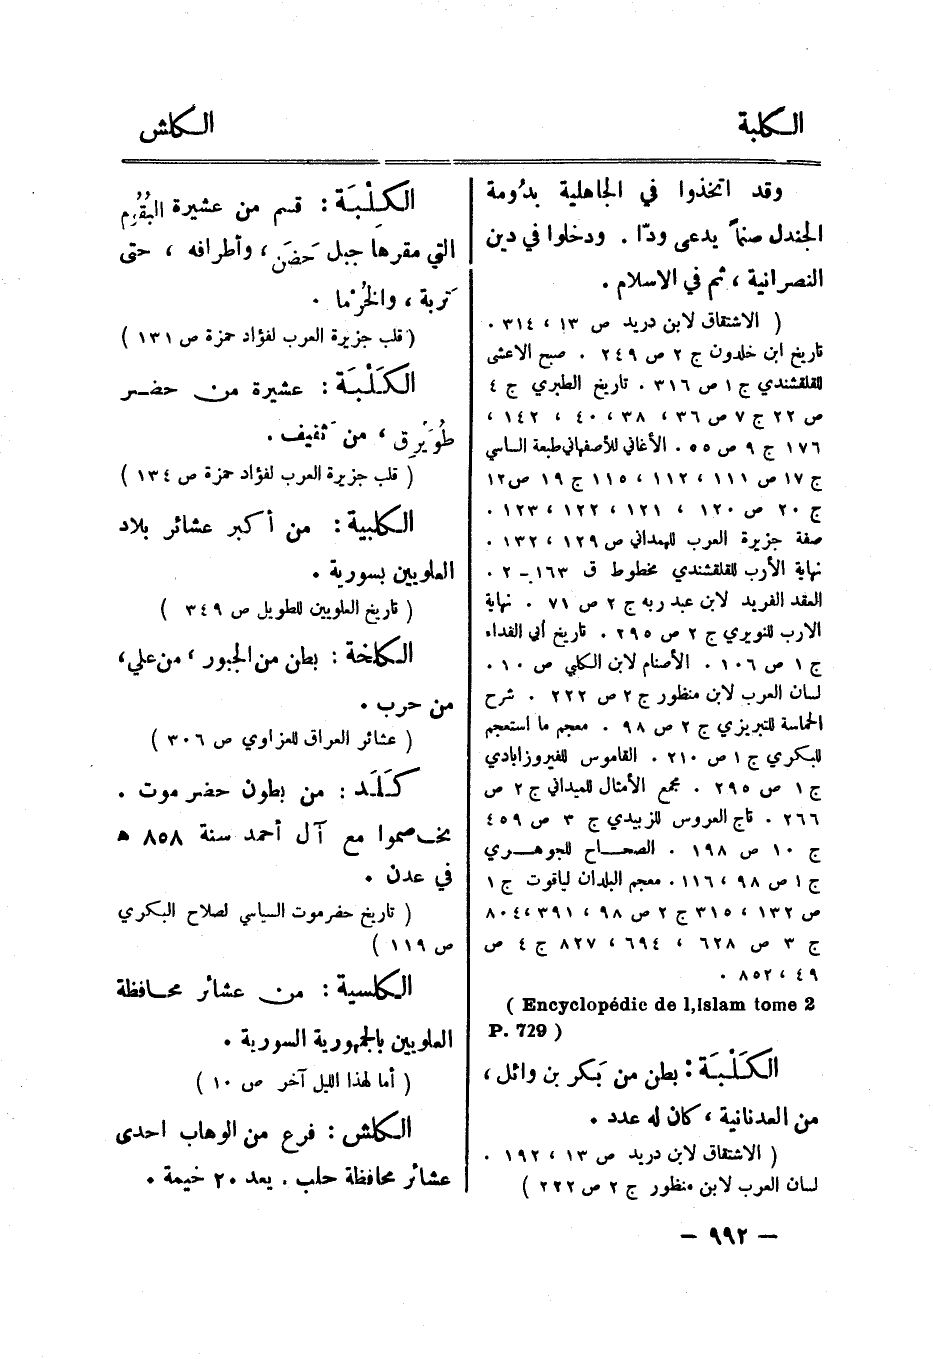 الكلبة
الكلش
وقد اتخذوا في الجاهلية بدُومة
الجندل صنماً يدعى ودّا . ودخلوا في دين
النصرانية ، ثم في الاسلام .
( الاشتقاق لابن دريد ص ١٣ ، ٣١٤ .
تاريخ ابن خلدون ج ٢ ص ٢٤٩ . صبح الاعشى
للقلقشندي ج ١ ص ٣١٦ . تاريخ الطبري ج ٤
ص ٢٢ ج ٧ ص ٣٦ ، ٣٨ ، ٤٠ ، ١٤٢ ،
١٧٦ ج ٩ ص ٥٥ . الأغاني للأصفهاني طبعة الساسي
ج ١٧ ص ١١١ ، ١١٢ ، ١١٥ ج ١٩ ص ١٢
ج ٢٠ ص ١٢٠ ، ١٢١ ، ١٢٢ ، ١٢٣ .
صفة جزيرة العرب للهمداني ص ١٢٩ ، ١٣٢ .
نهاية الأرب للقلقشندي مخطوط ق ١٦٣ ـ ٢ .
العقد الفريد لابن عبد ربه ج ٢ ص ٧١ . نهاية
الارب للنويري ج ٢ ص ٢٩٥ . تاريخ أبي الفداء
ج ١ ص ١٠٦ . الأصنام لابن الكلبي ص ١٠ .
لسان العرب لابن منظور ج ٢ ص ٢٢٢ . شرح
الحماسة للتبريزي ج ٢ ص ٩٨ . معجم ما استعجم
للبكري ج ١ ص ٢١٠ . القاموس للفيروزابادي
ج ١ ص ٢٩٥ . مجمع الأمثال للميداني ج ٢ ص
٢٦٦ . تاج العروس للزبيدي ج ٣ ص ٤٥٩
ج ١٠ ص ١٩٨ . الصحـــاح للجوهـــري
ج ١ ص ٩٨ ، ١١٦ . معجم البلدان لياقوت ج ١
ص ١٣٢ ، ٣١٥ ج ٢ ص ٩٨ ، ٣٩١ ، ٨٠٤
ج ٣ ص ٦٢٨ ، ٦٩٤ ، ٨٢٧ ج ٤ ص
٤٩ ، ٨٥٢ .
( Encyclopédic de l,Islam tome 2
P. 729 )
الكَلْبَة : بطن من بَكر بن وائل ،
من العدنانية ، كان له عدد .
( الاشتقاق لابن دريد ص ١٣ ، ١٩٢ .
لسان العرب لابن منظور ج ٢ ص ٢٢٢ )
الكِلْبَة : قسم من عشيرة البُقُوم
التي مقرها جبل حَضَن ، وأطرافه ، حتى
تَربة ، والخُرْما .
( قلب جزيرة العرب لفؤاد حمزة ص ١٣١ )
الكَلْبَة : عشيرة من حضـر
طُوَيْرِق ، من ثَقيف .
( قلب جزيرة العرب لفؤاد حمزة ص ١٣٤ )
الكلبية : من أكبر عشائر بلاد
العلويين بسورية .
( تاريخ العلويين للطويل ص ٣٤٩ )
الكلخة : بطن من الجبور ، من علي ،
من حرب .
( عشائر العراق للعزاوي ص ٣٠٦ )
كَلَد : من بطون حضرموت .
تخاصموا مع آل أحمد سنة ٨٥٨ ه
في عدن .
( تاريخ حضرموت السياسي لصلاح البكري
ص ١١٩ )
الكلسية : من عشائر محافظة
العلويين بالجمهورية السورية .
( أما لهذا الليل آخر ص ١٠ )
الكلش : فرع من الوهاب احدى
عشائر محافظة حلب . يعد ٢٠ خيمة .
— ٩٩٢ —